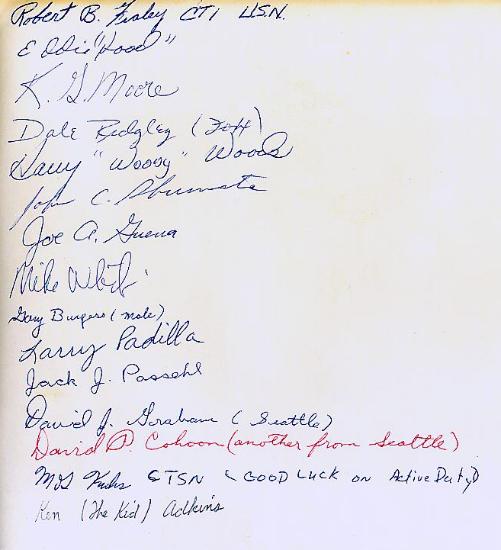 Robert B. Finley CT1 U.S.N.
Eddie "Hood"
K. G. Moore
Dale Ridgley (Foxx)
"Woody" Woods
John C. Shumate
Joe A. Guerra
Mike
Gary Burgess (mole)
Larry Padilla
Jack J. Passehl
David J. Graham (Seattle)
David P. Cohoon (another from Seattle)
CTSN GOOD LUCK on Active Duty)
Ken (The Kid) Adkins